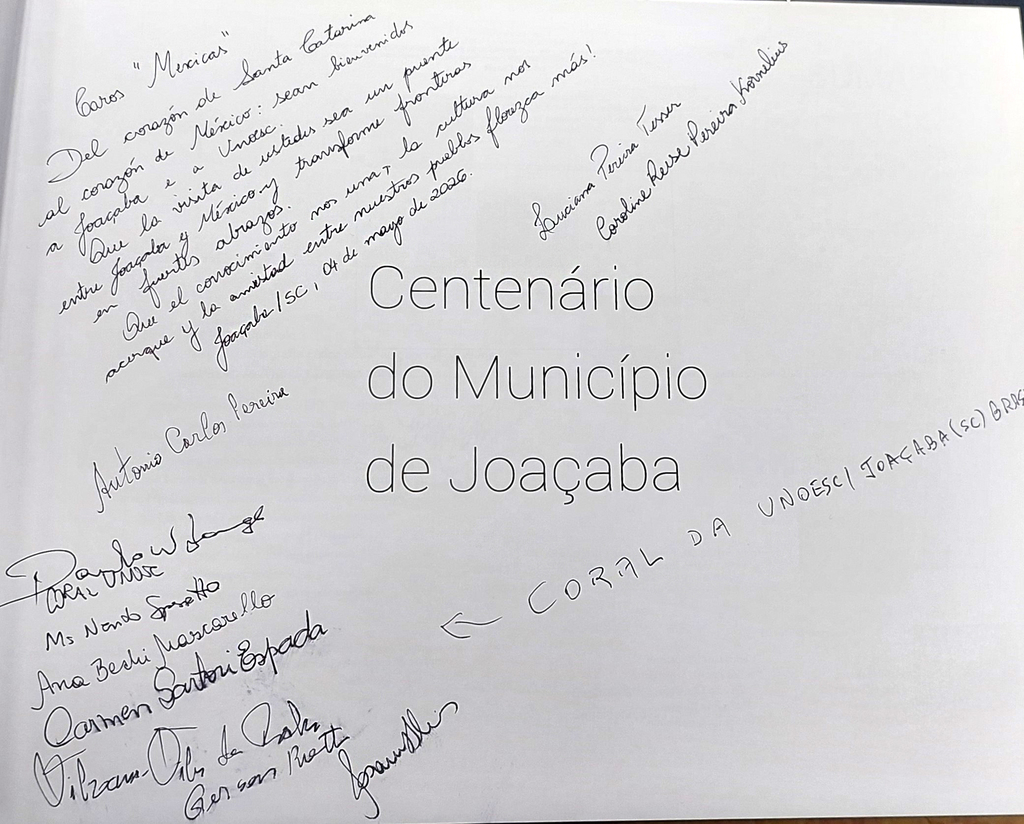 Caros "Mexicas"
Del corazón de Santa Catarina
al corazón de México: sean bienvenidos
a Joaçaba e a Unoesc.
Que la visita de ustedes sea un puente
entre Joaçaba y México y transforme fronteras
en fuertes abrazos.
Que el conocimiento nos una, la cultura nos
acerque y la amistad entre nuestros pueblos florezca más!
Joaçaba/SC, 04 de mayo de 2026.
Luciana Pereira Tesser
Caroline Reise Pereira Kornelius
Centenário
do Município
de Joaçaba
Antonio Carlos Pereira
CORAL UNOESC
Ms Nando
Ana Bechi Mascarello
Carmen Sartori Espada
Gerson
← CORAL DA UNOESC/JOAÇABA(SC) BRAS